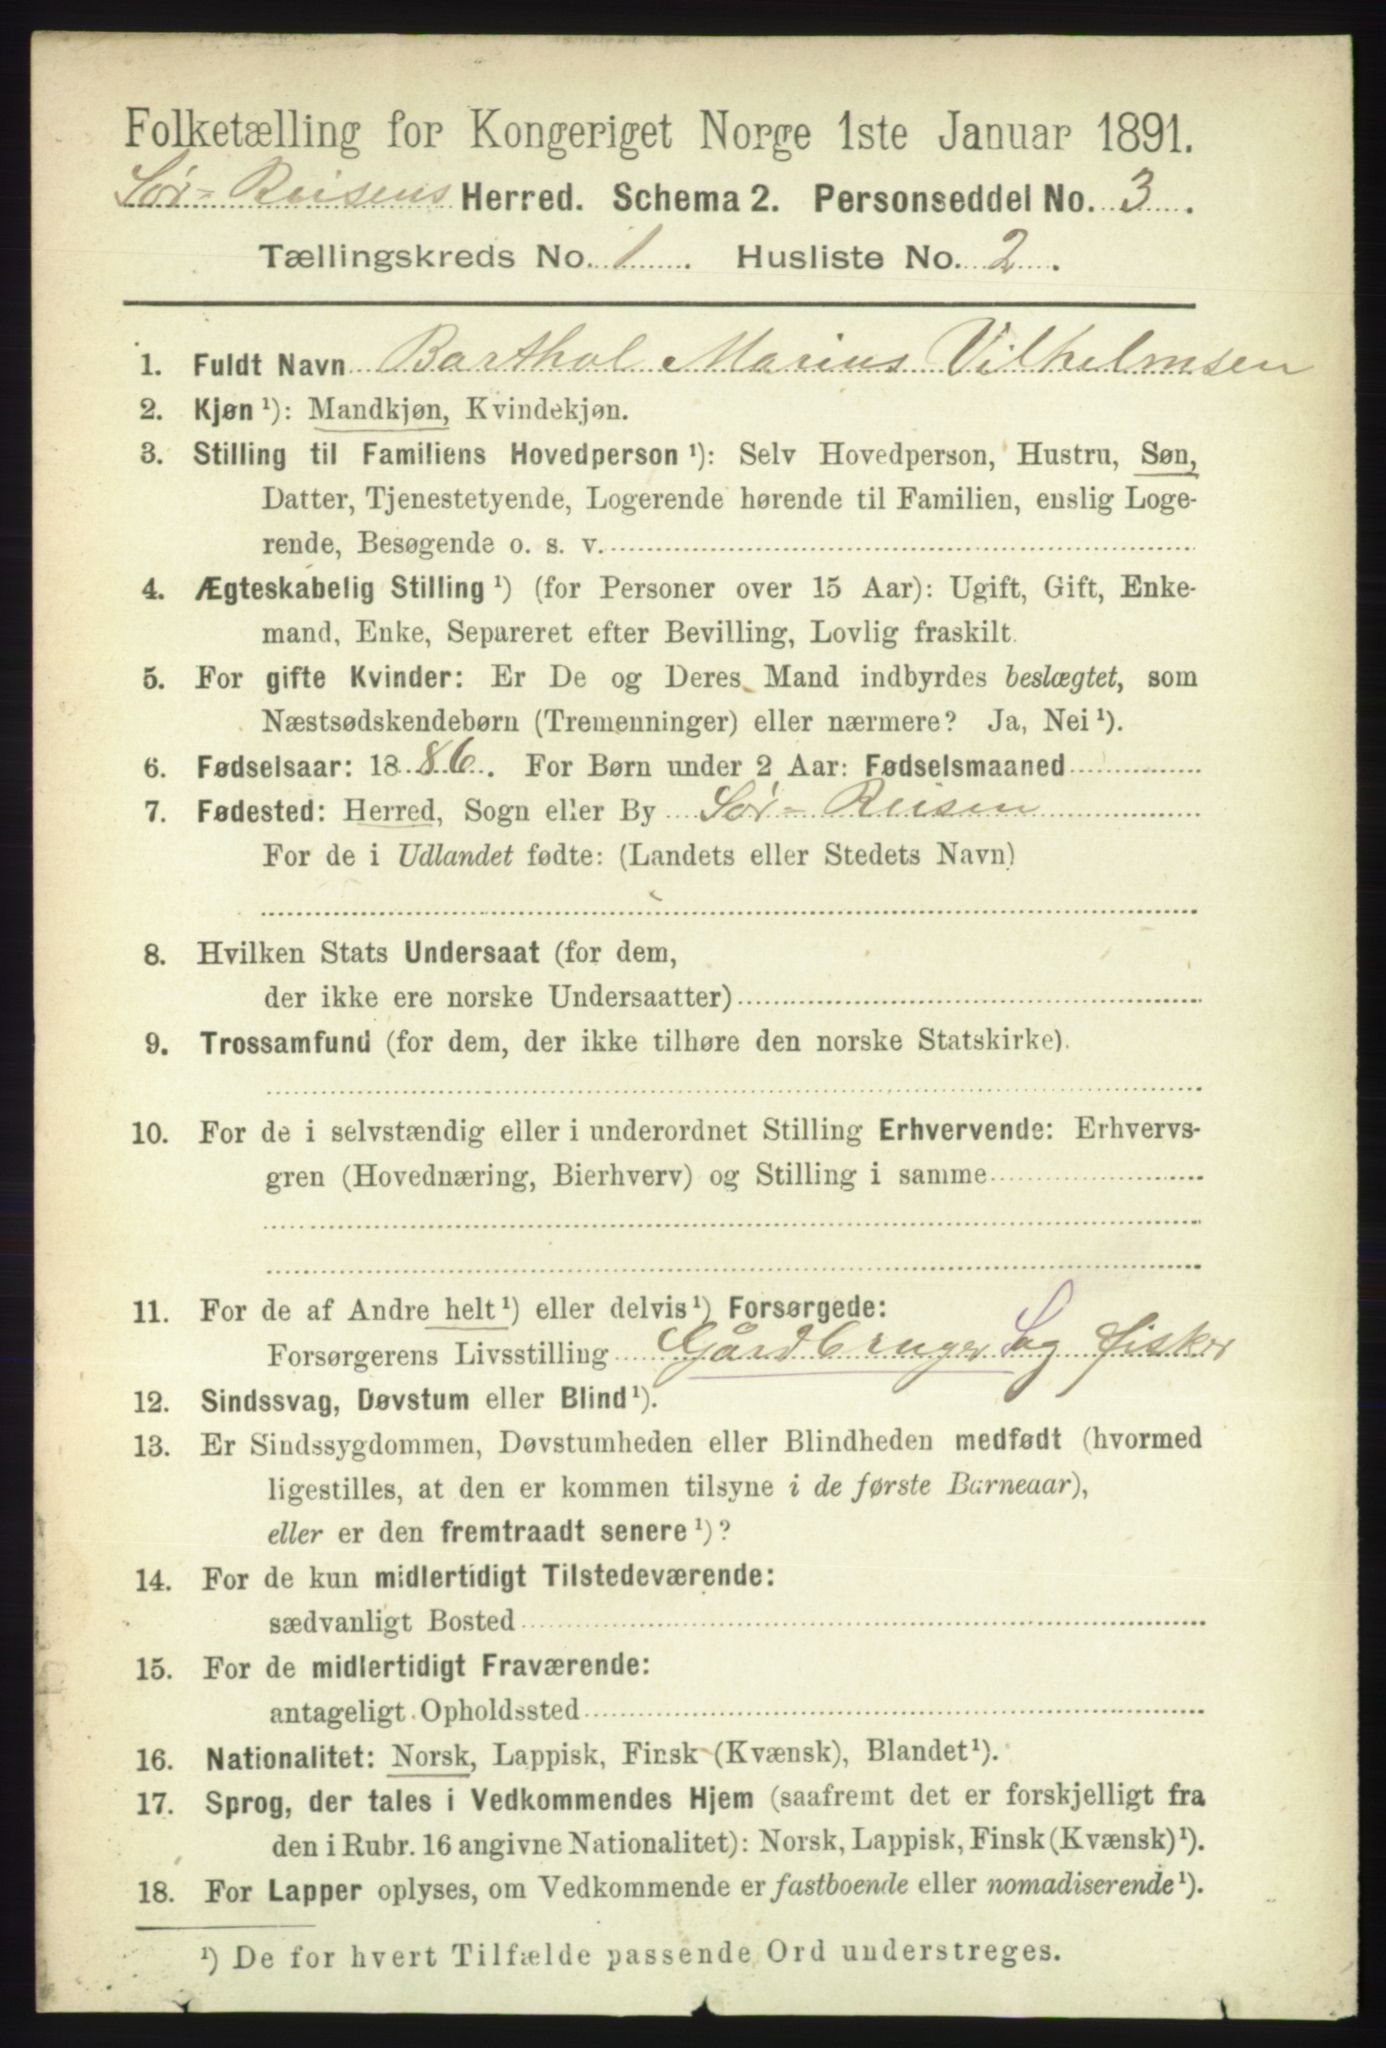 Folketælling for Kongeriget Norge 1ste Januar 1891.
Sør-Reisens Herred. Schema 2. Personseddel No. 3.
Tællingskreds No. 1. Husliste No. 2.
1. Fuldt Navn Barthol Marius Vilhelmsen
2. Kjøn ¹): Mandkjøn, Kvindekjøn.
3. Stilling til Familiens Hovedperson ¹): Selv Hovedperson, Hustru, Søn,
Datter, Tjenestetyende, Logerende hørende til Familien, enslig Loge-
rende, Besøgende o. s. v.
4. Ægteskabelig Stilling ¹) (for Personer over 15 Aar): Ugift, Gift, Enke-
mand, Enke, Separeret efter Bevilling, Lovlig fraskilt.
5. For gifte Kvinder: Er De og Deres Mand indbyrdes beslægtet, som
Næstsødskendebørn (Tremenninger) eller nærmere? Ja, Nei ¹).
6. Fødselsaar: 1886. For Børn under 2 Aar: Fødselsmaaned
7. Fødested: Herred, Sogn eller By Sør-Reisen
For de i Udlandet fødte: (Landets eller Stedets Navn)
8. Hvilken Stats Undersaat (for dem,
der ikke ere norske Undersaatter)
9. Trossamfund (for dem, der ikke tilhøre den norske Statskirke).
10. For de i selvstændig eller i underordnet Stilling Erhvervende: Erhvervs-
gren (Hovednæring, Bierhverv) og Stilling i samme
11. For de af Andre helt ¹) eller delvis ¹) Forsørgede:
Forsørgerens Livsstilling Gårdbruger og fisker
12. Sindssvag, Døvstum eller Blind ¹).
13. Er Sindssygdommen, Døvstumheden eller Blindheden medfødt (hvormed
ligestilles, at den er kommen tilsyne i de første Barneaar),
eller er den fremtraadt senere ¹)?
14. For de kun midlertidigt Tilstedeværende:
sædvanligt Bosted
15. For de midlertidigt Fraværende:
antageligt Opholdssted
16. Nationalitet: Norsk, Lappisk, Finsk (Kvænsk), Blandet ¹).
17. Sprog, der tales i Vedkommendes Hjem (saafremt det er forskjelligt fra
den i Rubr. 16 angivne Nationalitet): Norsk, Lappisk, Finsk (Kvænsk) ¹).
18. For Lapper oplyses, om Vedkommende er fastboende eller nomadiserende ¹).
¹) De for hvert Tilfælde passende Ord understreges.